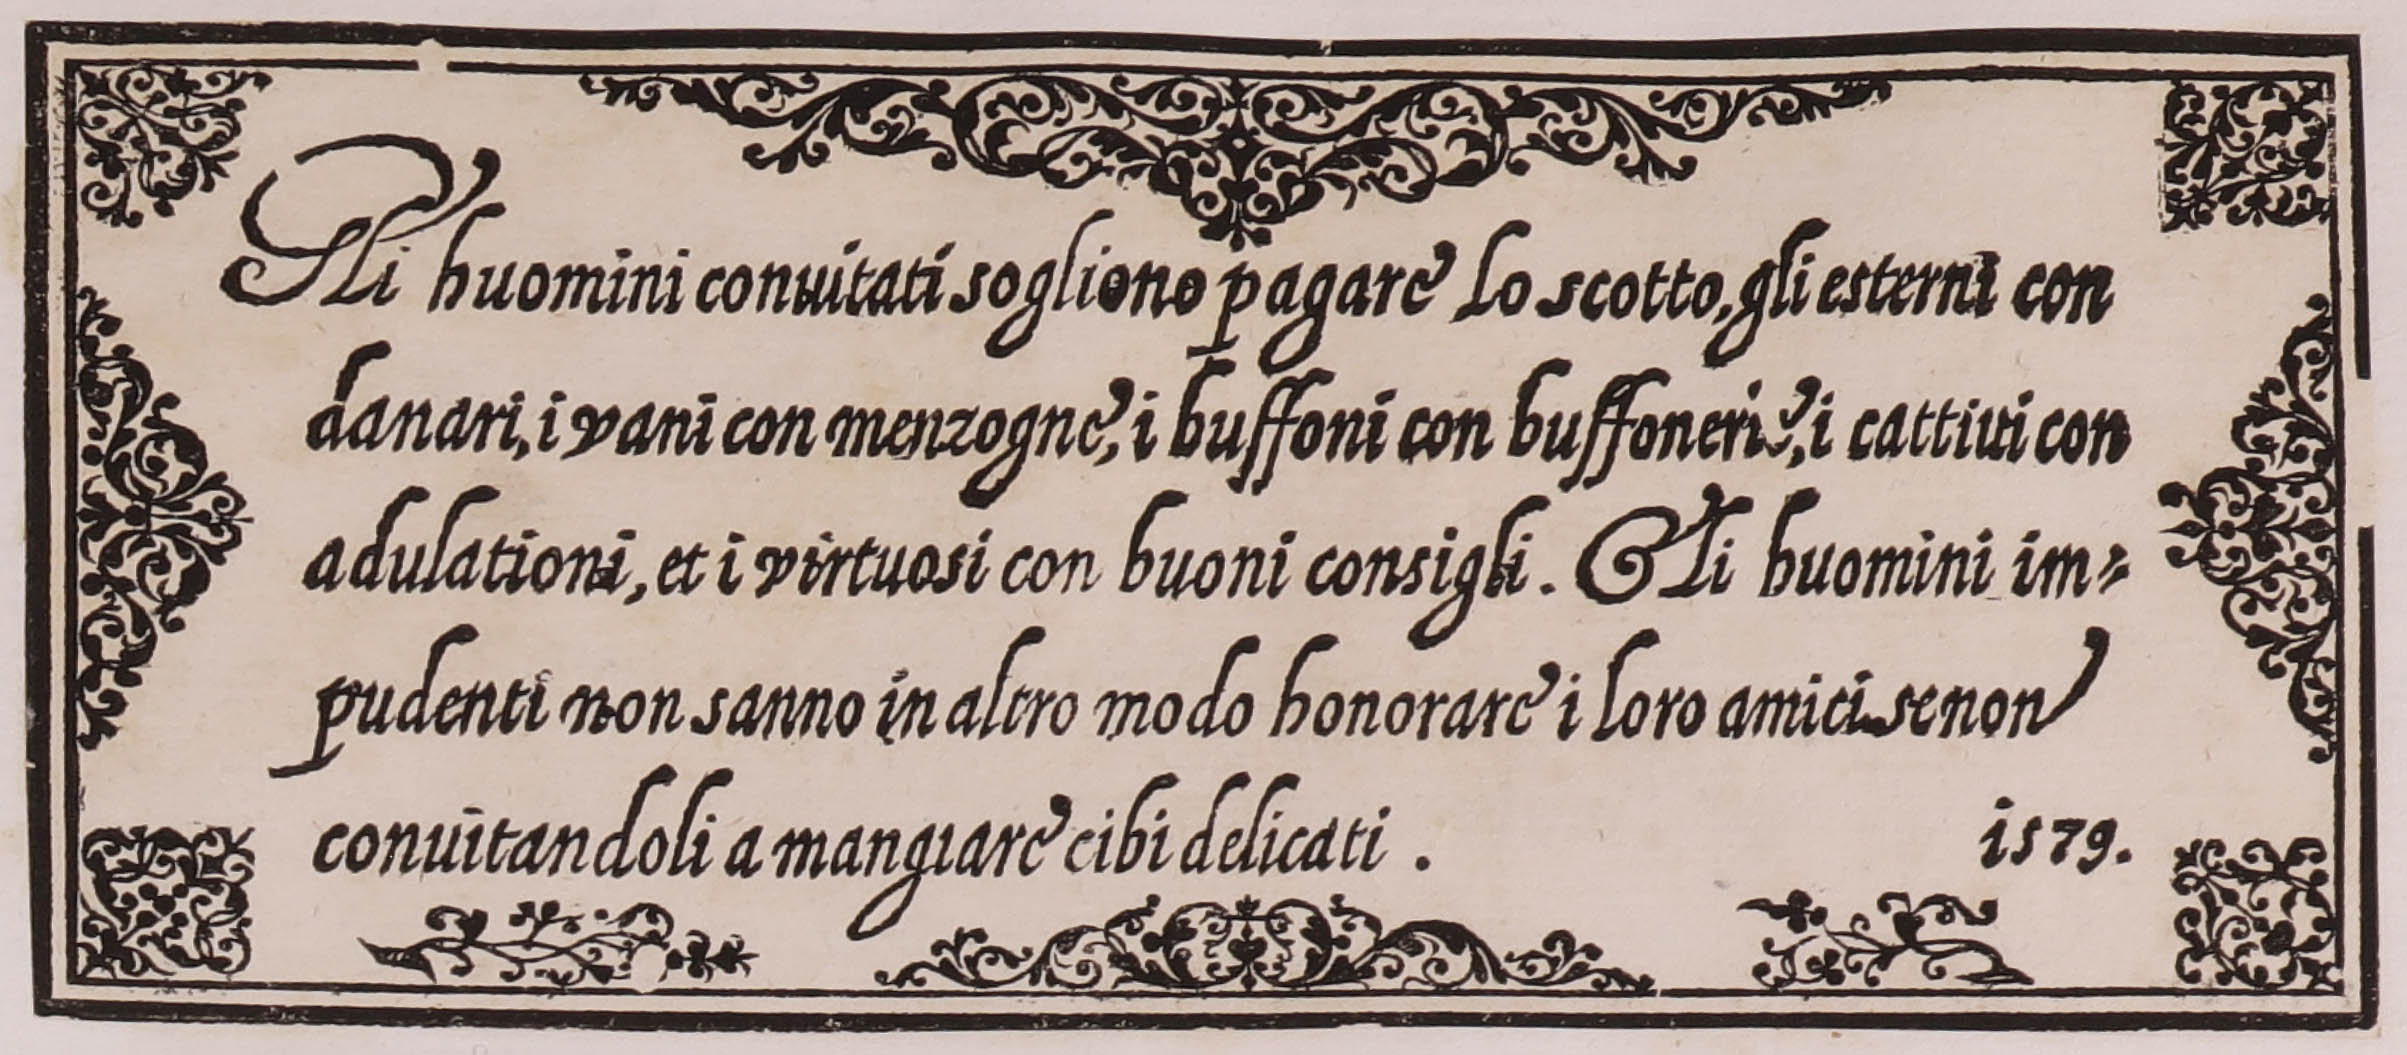 Gli huomini conuitati sogliono pagare lo scotto, gli esterni con
danari, i vani con menzogne, i buffoni con buffonerie, i cattiui con
adulationi, et i virtuosi con buoni consigli. Gli huomini im-
pudenti non sanno in altro modo honorare i loro amici se non
conuitandoli a mangiare cibi delicati.
1579.